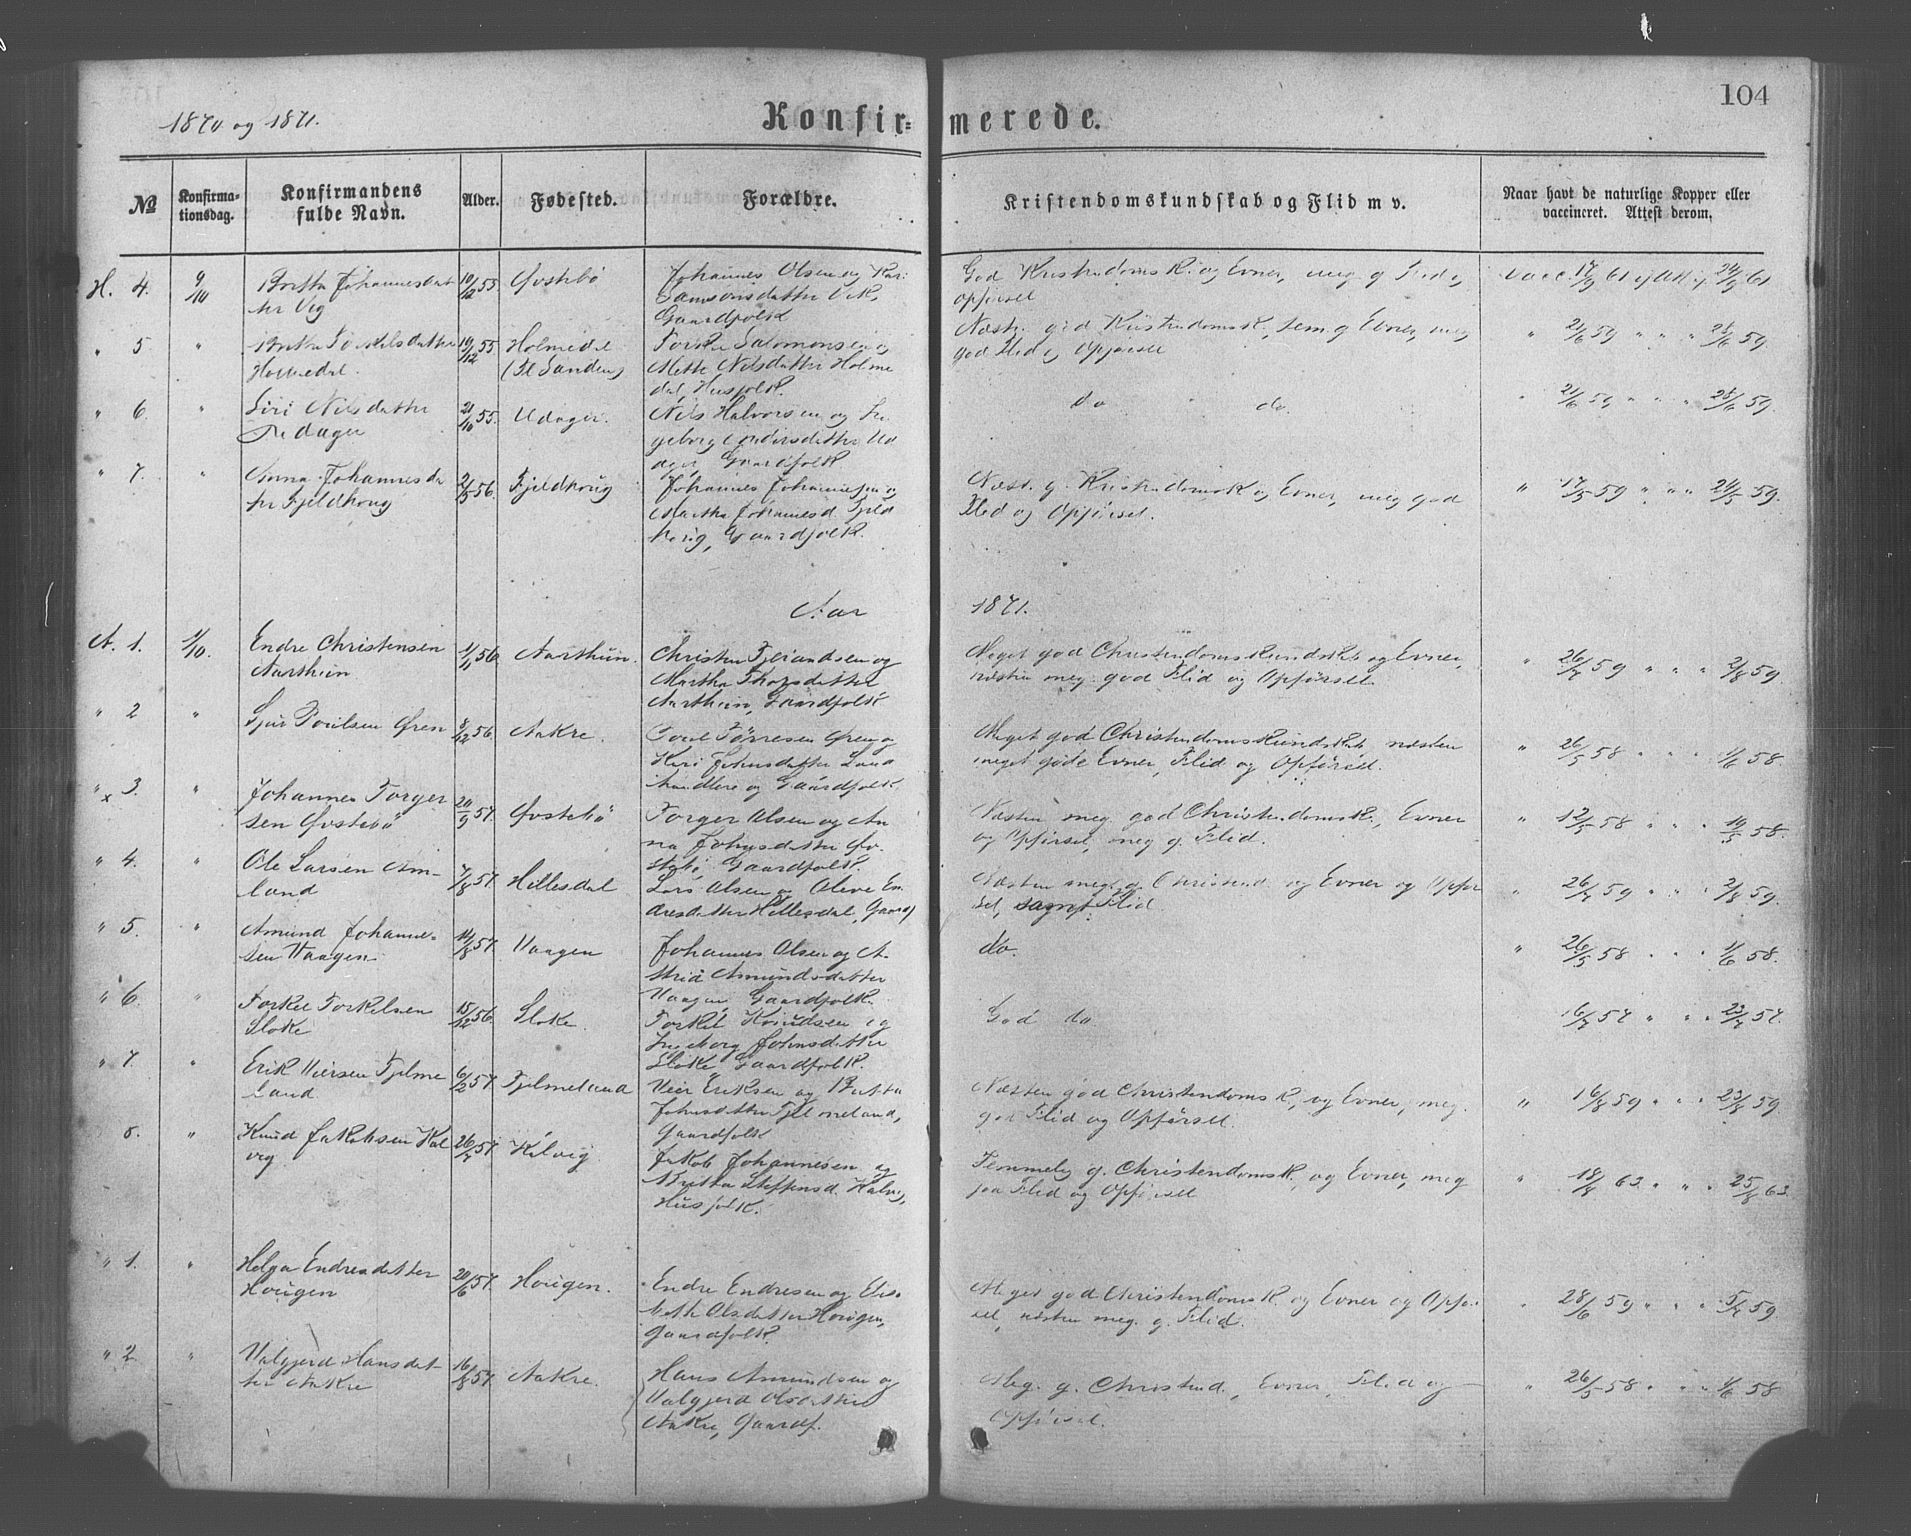 104
1870 og 1871.
Konfir-
merede.
№
Konfirma-
tionsdag.
Konfirmandens
fulde Navn.
Alder.
Fødested.
Forældre.
Kristendomskundskab og Flid m v.
Naar havt de naturlige Kopper eller
vaccineret. Attest derom.
H. 4. 9/10 Britha Johannesdat
ter Vig
10/12 55 Øvstebö
Johannes Olsen og Kari
Samsonsdatter Vik,
Gaardfolk
God Kristendomsk. og Evner, meg. g. Flid og
Opførsel
vacc. 17/9 61 24/9 61
" 5 " Britha Torkilsdatter
Holmedal.
19/12 55 Holmedal
Salomonsen og
Mette Nilsdatter Holme
dal, Husfolk.
Næst. god Kristendomsk., tem. g. Evner, meg
god Flid og Opførsel
" 21/6 59 " " " 25/6 59.
" 6 " Siri Nilsdatter
Udager
21/10 55. Udager.
Nils Halvorsen og In
geborg Endresdatter Ud
ager Gaardfolk
do " do.
" 21/6 59 " " " 25/6 59.
" 7 " Anna Johannesda
ter Fjeldhoug
2/5 56. Fjeldhoug
Johannes Johannesen og
Martha Johannesd. Fjeld
houg, Gaardfolk.
Næst. g. Kristendomsk og Evner, meg god
Flid og Opførsel.
" 17/5 59 " " " 24/5 59.
Aar
1871.
A. 1. 1/10. Endre Christensen
Aarthun
11/11 56 Aarthun.
Christen Erlandsen og
Martha Thorsdatter
Aarthun, Gaardfolk
Meget god Christendomskundskab og Evner,
næsten meg. god Flid og Opførsel.
" 26/7 59 " " " 2/8 59
" 2 " Sjur Poulsen Øren
8/12 56. Aakre.
Poul Törresen Øren og
Kari Johnsdatter Land
handlere og Gaardfolk
Meget god Christendomskundskab næsten
meget gode Evner, Flid og Opførsel.
" 26/5 58 " " " 1/6 58.
" x 3. " Johannes Torger
sen Øvstebö
20/9 57. Øvstebö
Torger Olsen og An
na Johnsdatter Øv-
stebö, Gaardfolk
Næsten meg. god Christendomsk., Evner
og Opførsel, meg g. Flid.
" 12/5 58 " " " 19/5 58.
" 4. " Ole Larsen Am-
land
7/8 57 Hillesdal
Lars Olsen og Oleve En
dresdatter Hillesdal, Gaardf
Næsten meg. g. Christend. og Evner og Opfør
sel, samt Flid.
" 26/7 59 " " " 2/8 59.
" 5. " Amund Johanne-
sen Vaagen
14/8 57. Vaagen
Johannes Olsen og A-
strid Amundsdatter
Vaagen, Gaardfolk
do.
" 26/5 58 " " " 1/6 58.
" 6. " Torkel Torkelsen
Sloke
15/12 56. Sloke.
Torkel Knudsen og
Ingeborg Johnsdatter
Sloke, Gaardfolk.
God do
16/7 57 " " " 23/7 57.
" 7. " Erik Viersen Fjelme
land
6/2 57 Fjelmeland
Vier Eriksen og Britha
Johnsdatter Fjelmeland,
Gaardfolk
Næsten god Christendomsk, og Evner, meg.
god Flid og Opførsel.
" 16/8 59 " " " 23/8 59.
8. " Knud Jakobsen Kal
vig
26/7 57 Kalvig
Jakob Johannesen og
Britha Steffensd. Kalvig,
Husfolk.
Temmelig g. Christendomsk, og Evner, meg
god Flid og Opførsel
" 18/8 63 " " " 25/8 63.
" 1. " Helga Endresdatter
Hougen
20/6 57. Hougen.
Endre Endresen og Elisa
beth Olsdatter Hougen,
Gaardfolk.
Meget god Christendomsk. og Evner og Opfør
sel, næsten meg. g. Flid.
" 28/6 59 " " " 5/7 59
" 2. " Valgjerd Hansdat-
ter Aakre
16/8 57. Aakre.
Hans Amundsen og
Valgjerd Olsdatter
Aakre, Gaardf.
Meg. g. Christend., Evner, Flid og
Opførsel.
" 26/5 58 " " " 1/6 58